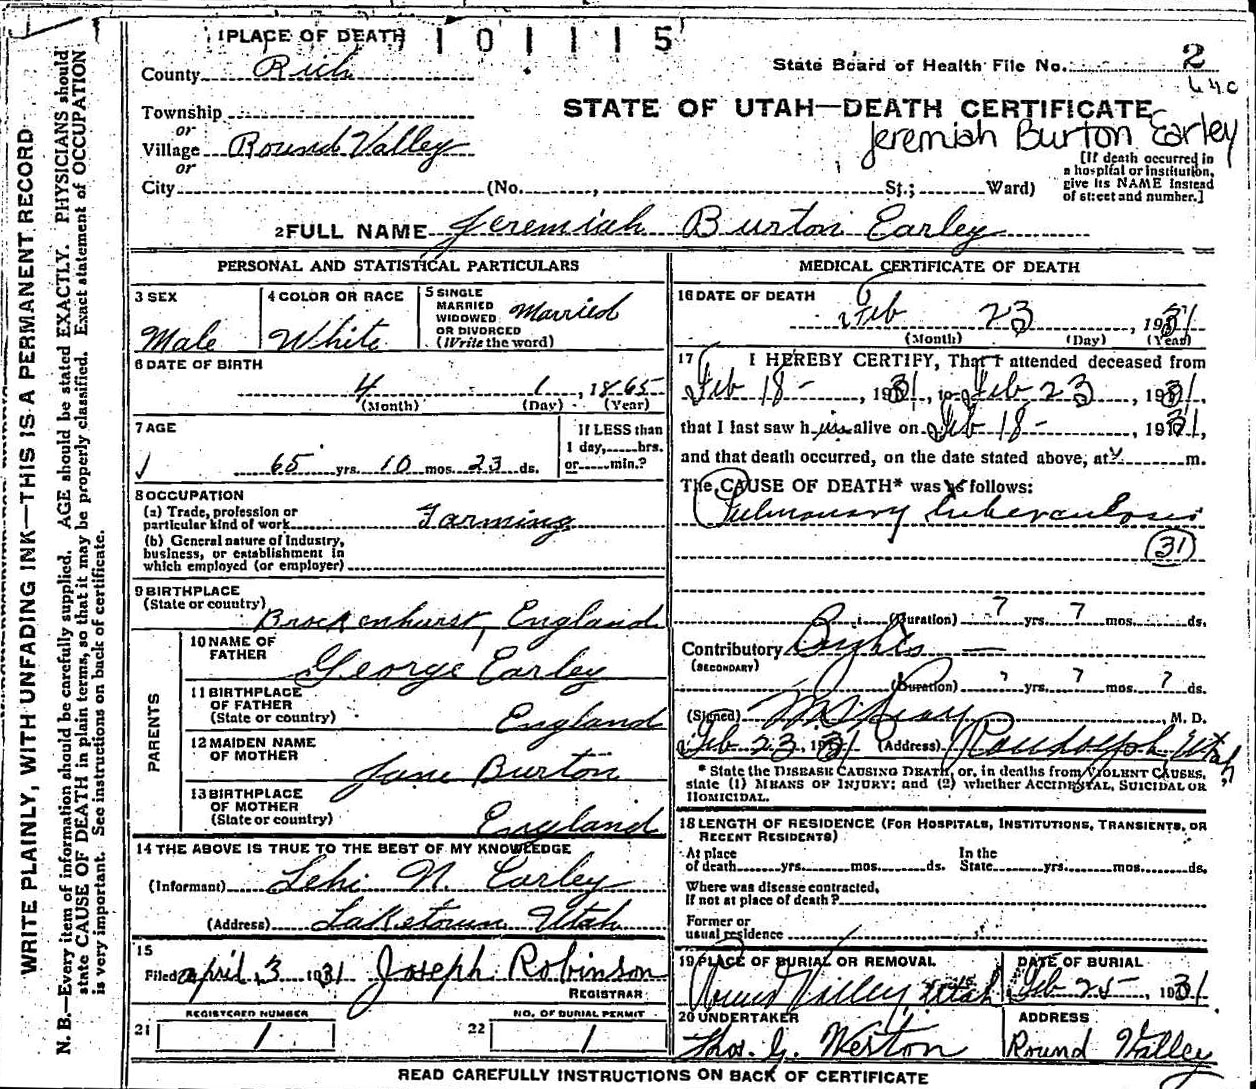 1 PLACE OF DEATH 1 0 1 1 1 5
State Board of Health File No. 2
County Rich
STATE OF UTAH—DEATH CERTIFICATE
Jeremiah Burton Earley
Township
or
Village Round Valley
or
City (No. , St.; Ward)
[If death occurred in
a hospital or institution,
give its NAME instead
of street and number.]
2 FULL NAME Jeremiah Burton Earley
PERSONAL AND STATISTICAL PARTICULARS
3 SEX
Male
4 COLOR OR RACE
White
5 SINGLE
MARRIED
WIDOWED
OR DIVORCED
(Write the word)
Married
6 DATE OF BIRTH
4 1, 1865
(Month) (Day) (Year)
7 AGE
65 yrs. 10 mos. 23 ds.
If LESS than
1 day, hrs.
or min.?
8 OCCUPATION
(a) Trade, profession or
particular kind of work Farming
(b) General nature of industry,
business, or establishment in
which employed (or employer)
9 BIRTHPLACE
(State or country) Brockenhurst, England
PARENTS
10 NAME OF
FATHER George Earley
11 BIRTHPLACE
OF FATHER
(State or country) England
12 MAIDEN NAME
OF MOTHER Jane Burton
13 BIRTHPLACE
OF MOTHER
(State or country) England
14 THE ABOVE IS TRUE TO THE BEST OF MY KNOWLEDGE
(Informant) Lehi N. Earley
(Address) Laketown Utah
15
Filed April 3 1931 Joseph Robinson
REGISTRAR
REGISTERED NUMBER
21 1
NO. OF BURIAL PERMIT
22 1
MEDICAL CERTIFICATE OF DEATH
16 DATE OF DEATH
Feb 23, 1931
(Month) (Day) (Year)
17 I HEREBY CERTIFY, That I attended deceased from
Feb 18 -, 1931, to Feb 23, 1931,
that I last saw him alive on Feb 18 -, 1931,
and that death occurred, on the date stated above, at m.
The CAUSE OF DEATH* was as follows:
Pulmonary tuberculosis
31
(Duration) ? yrs. ? mos. ds.
Contributory Brights —
(SECONDARY)
(Duration) ? yrs. ? mos. ? ds.
(Signed) M. D.
Feb 23, 1931 (Address) Randolph Utah
* State the DISEASE CAUSING DEATH, or, in deaths from VIOLENT CAUSES,
state (1) MEANS OF INJURY; and (2) whether ACCIDENTAL, SUICIDAL OR
HOMICIDAL.
18 LENGTH OF RESIDENCE (FOR HOSPITALS, INSTITUTIONS, TRANSIENTS, OR
RECENT RESIDENTS)
At place
of death yrs. mos. ds.
In the
State yrs. mos. ds.
Where was disease contracted,
If not at place of death?
Former or
usual residence
19 PLACE OF BURIAL OR REMOVAL
Round Valley, Utah
DATE OF BURIAL
Feb 25, 1931
20 UNDERTAKER
Thos. G. Weston
ADDRESS
Round Valley
READ CAREFULLY INSTRUCTIONS ON BACK OF CERTIFICATE
WRITE PLAINLY, WITH UNFADING INK—THIS IS A PERMANENT RECORD
N. B.—Every item of information should be carefully supplied. AGE should be stated EXACTLY. PHYSICIANS should
state CAUSE OF DEATH in plain terms, so that it may be properly classified. Exact statement of OCCUPATION
is very important. See instructions on back of certificate.